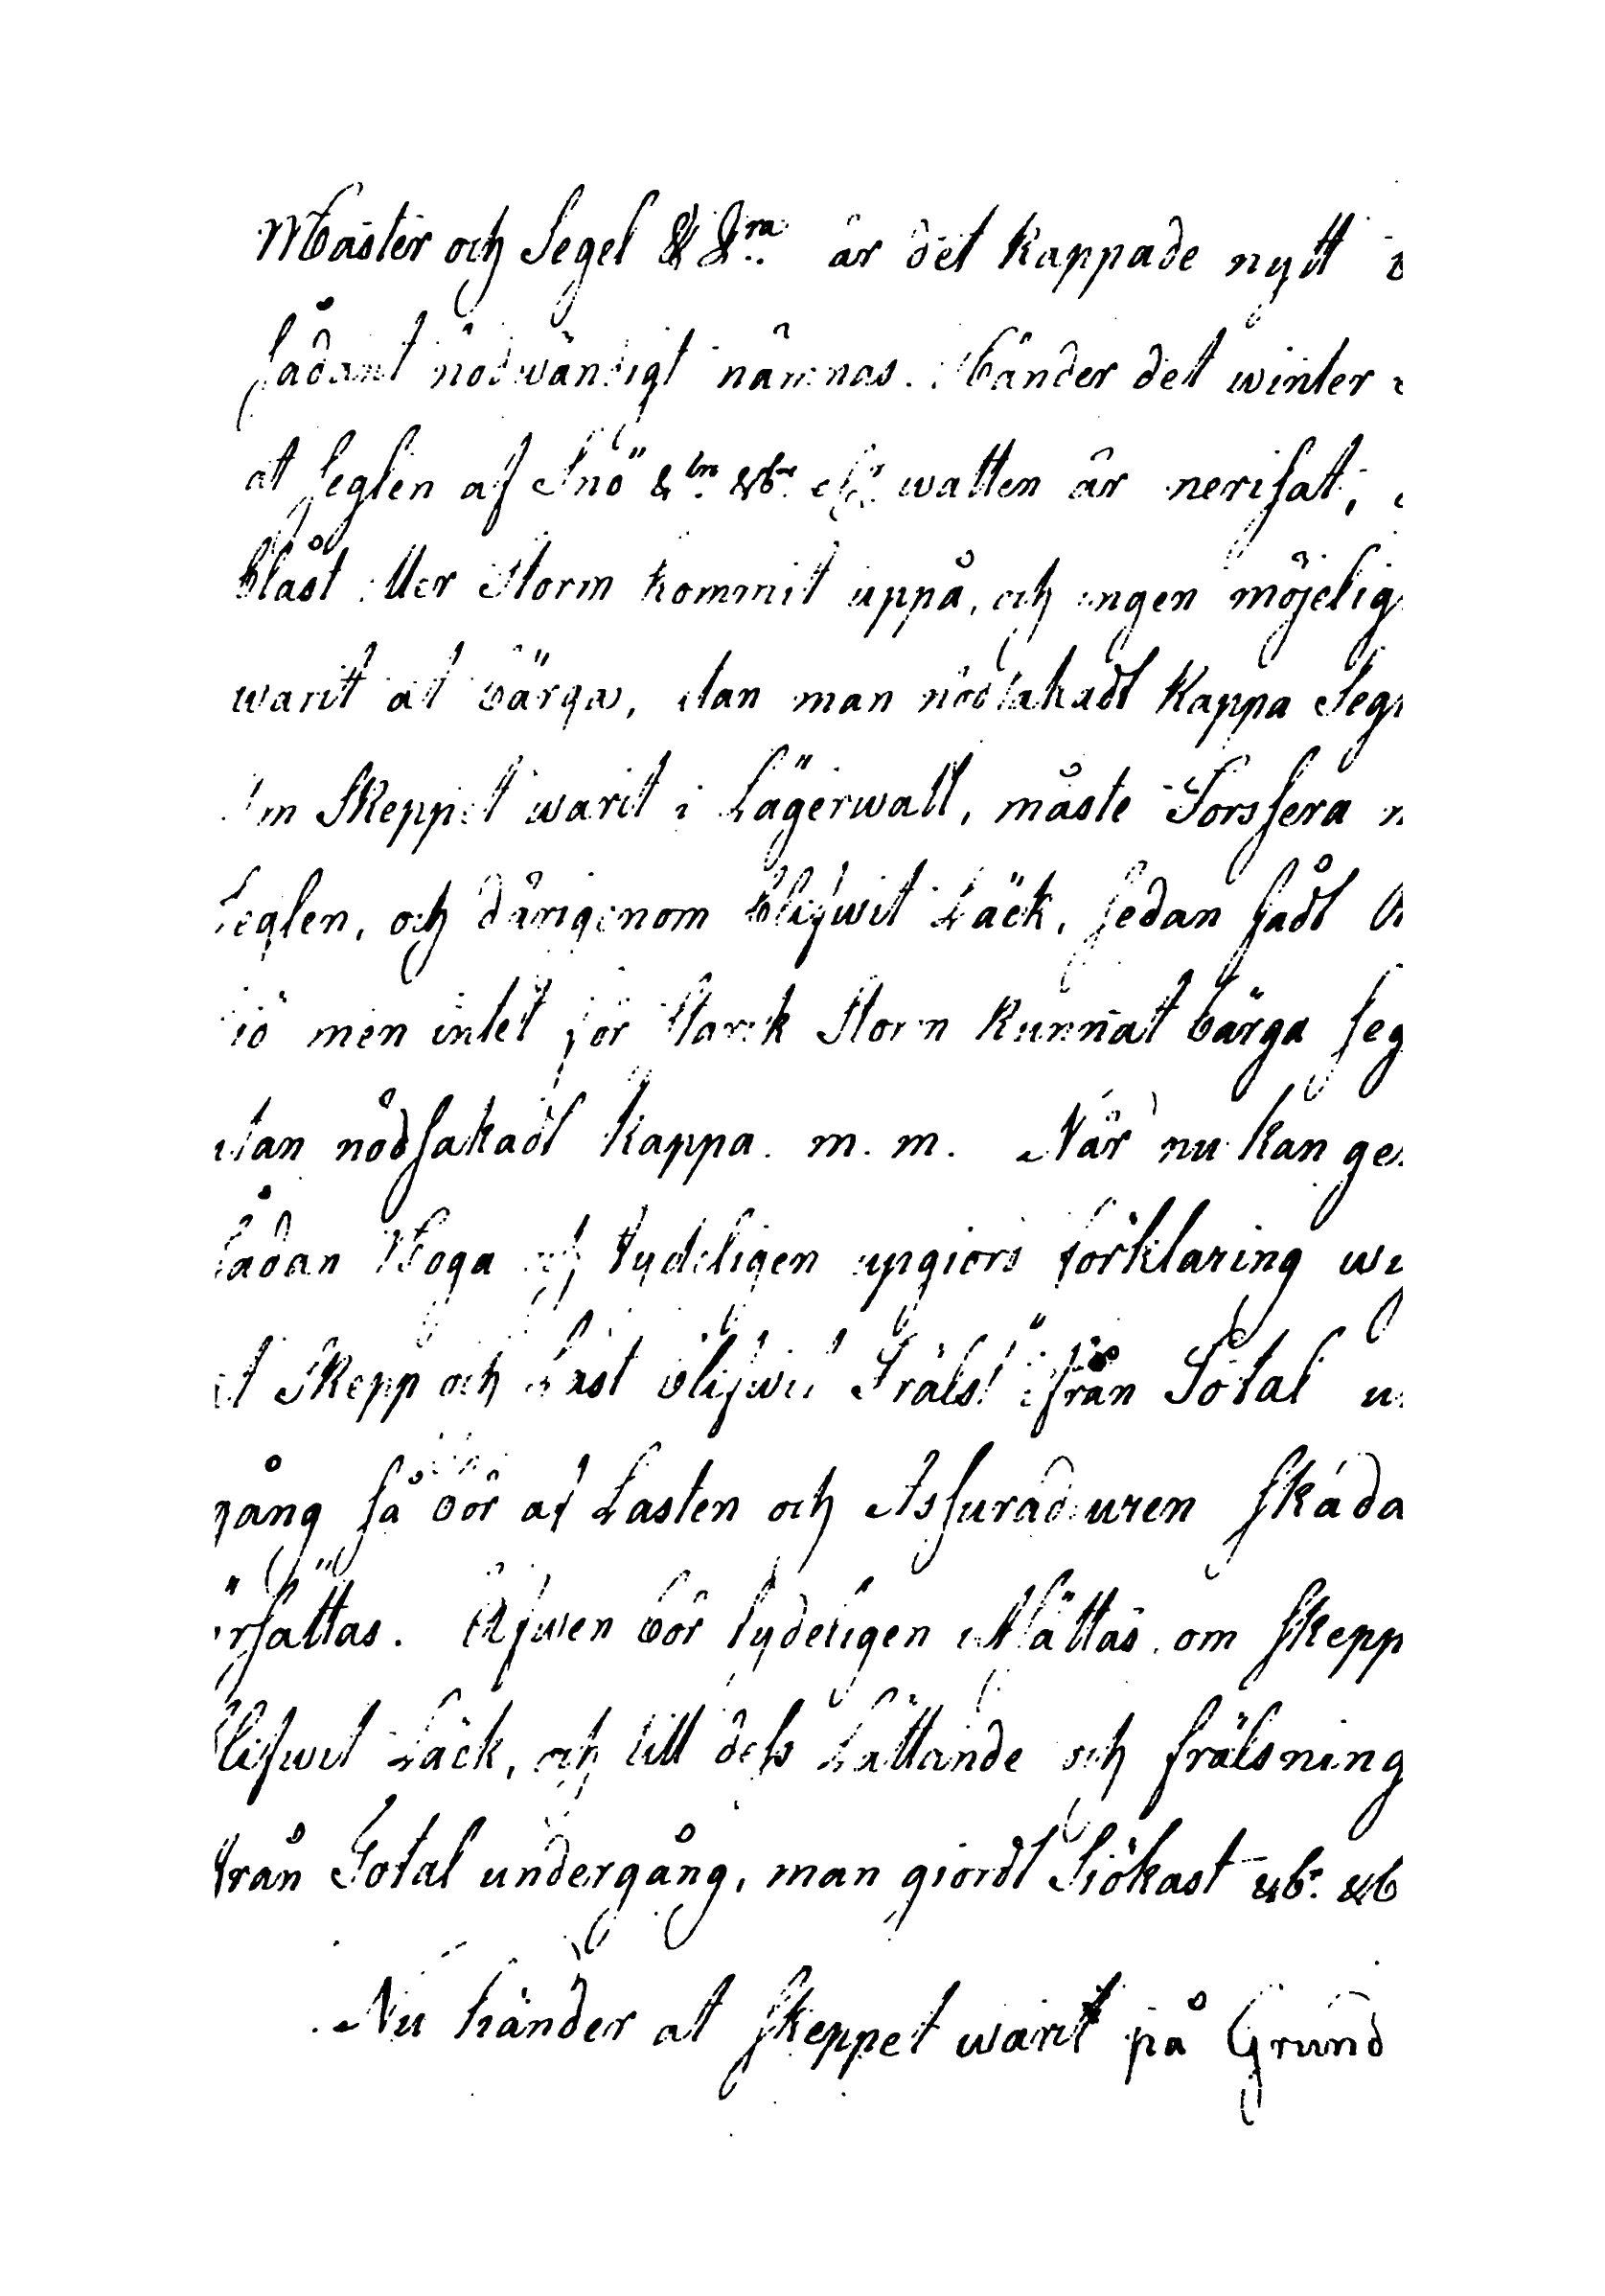 Master och Segel & &ra är det kappade nytt
sådant nödwändigt nämnas. Händer det winter
at seglen af Snö &br &br watten är nerisat,
blåst eller Storm kommit uppå, och ingen möjelig
warit at bärga, utan man nödsakadt kappa Seg
om Skeppet warit i Lägerwall, måste Forssera
Seglen, och därigenom blifwit Läck, sedan fådt
siö men intet för stark Storm kunnat bärga seg
utan nödsakadt kappa. m. m. När nu kan ge
sådan Noga och tydeligen upgiors förklaring
at Skepp och Last blifwit Fräls't ifrån Total
gång så bör af Lasten och Assuradeuren skada
ersättas. Äfwen bör tydeligen utsättas, om skepp
blifwit Läck, och till dess Lättande och frälsning
från Total undergång, man giordt Siökast &br &b
Nu händer at skeppet warit på Grund